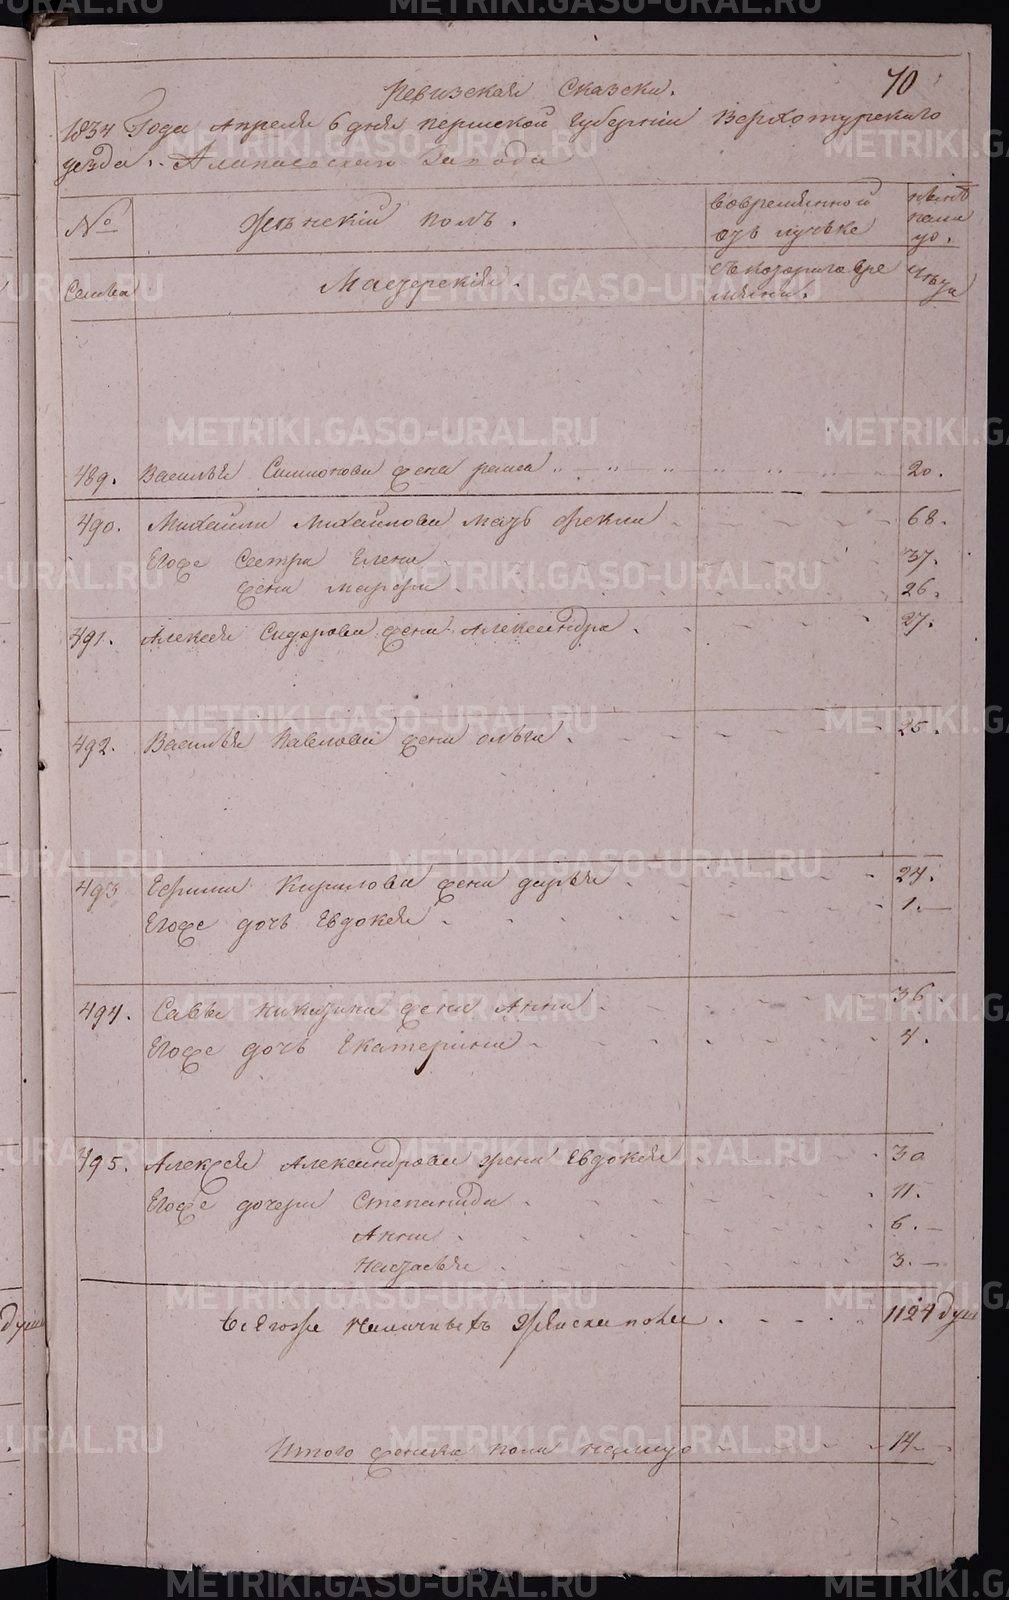 70
Ревизская Сказска.
1834 Года Апреля 6 дня пермской Губернiи Верхотурского
уезда. Алапаевского Завода
№
женскiй полъ.
вовременной
отъ лучьке
нынѣ
на ли
цо.
Семьи
Мастерскiя.
съкоторого вре
мяни.
лѣта
489. Василья Симионова жена раиса 20.
490. Михайли Михайлова мать Фекла 68.
Егоже Сестра Елена 37.
жена марфа 26.
491. Алексея Сидорова жена Александра 27.
492. Василья Павлова жена ольга 25.
493 Ефима Кирилова жена дарья 24.
Егоже дочь Евдокея 1.
494. Савы никитина жена Анна 36.
Егоже дочь Екатерина 4.
495. Алексея Александрова жена Евдокея 30
Егоже дочери Степанида 11.
Анна 6.
Настасья 3.
Всегоже наличныхъ женска пола 1124 душ
Итого женска пола налицо 14
METRIKI.GASO-URAL.RU